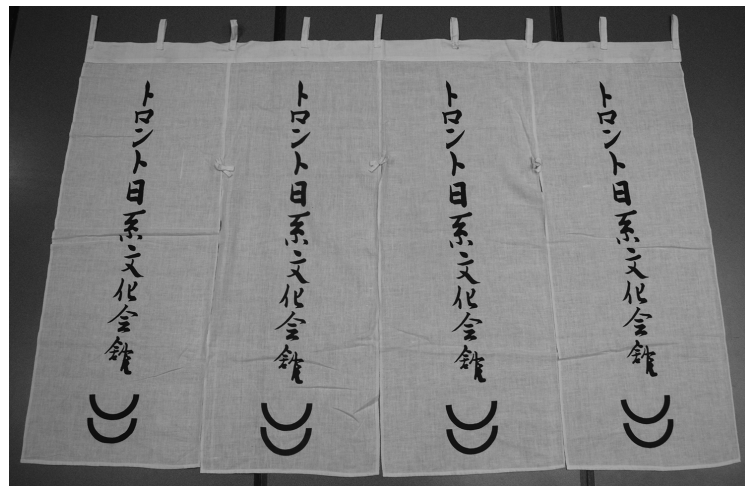 トロント日系文化会館
トロント日系文化会館
トロント日系文化会館
トロント日系文化会館